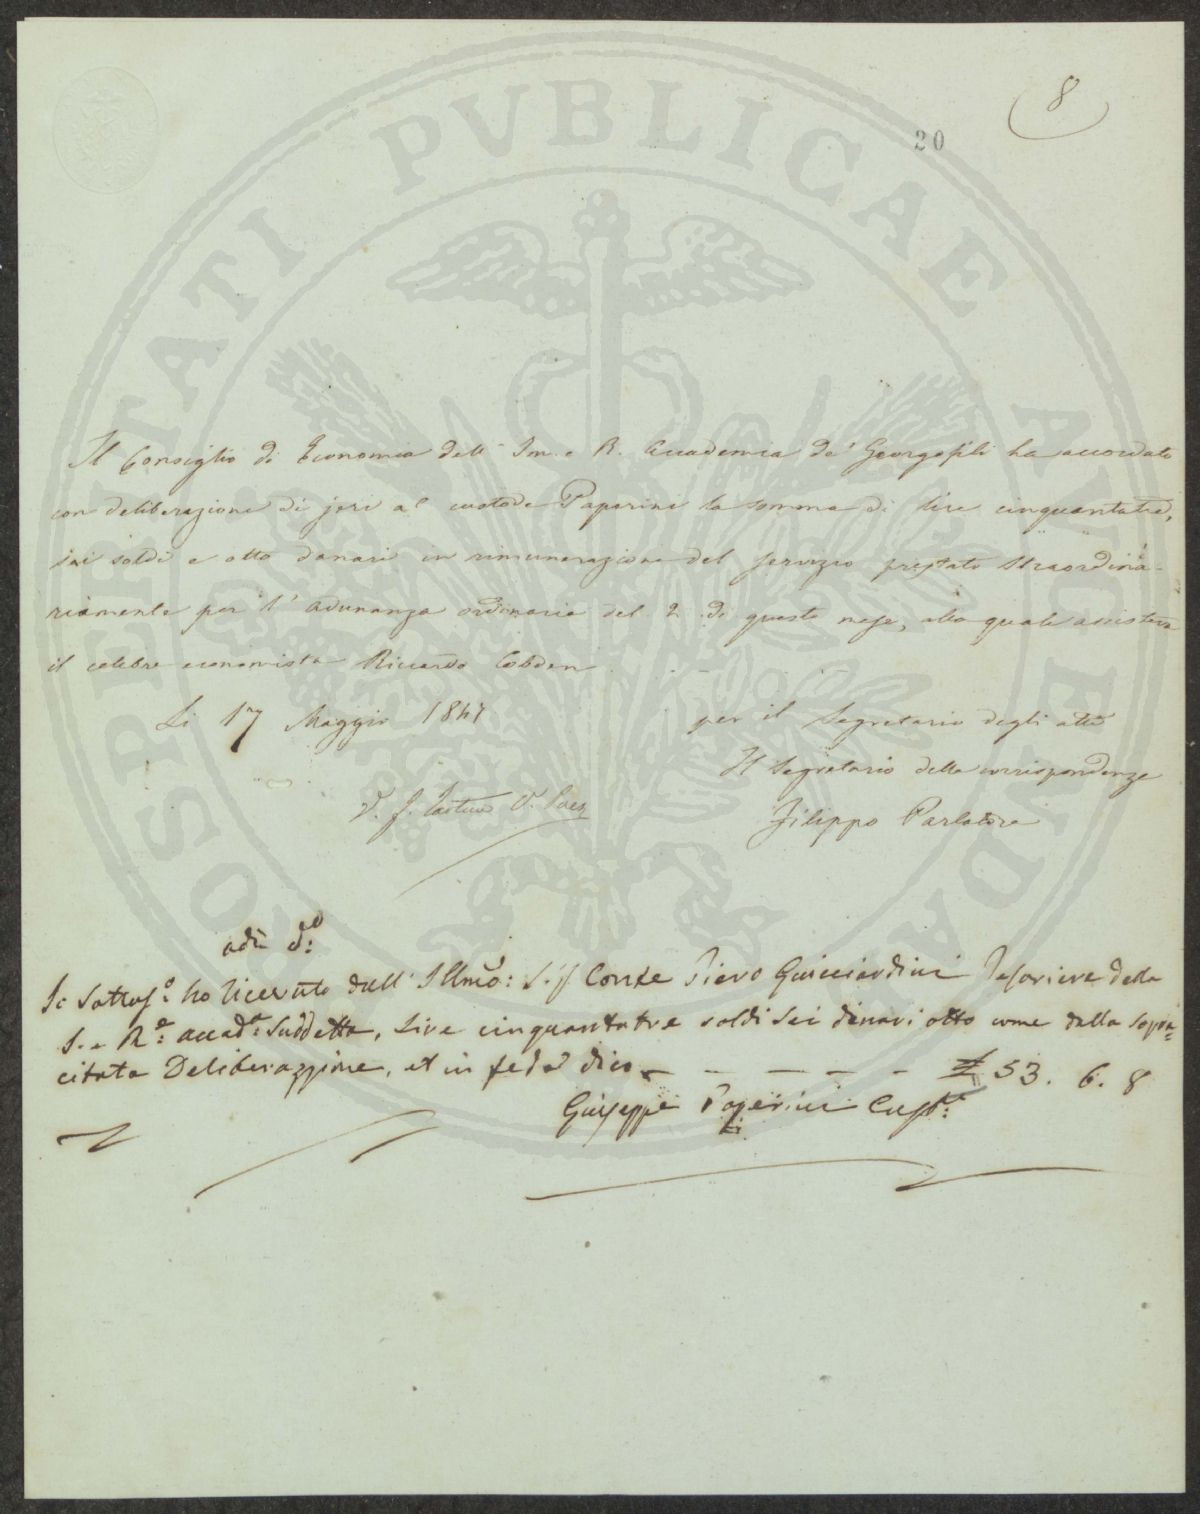 8
20
PROSPERITATI PVBLICAE AVGENDAE
Il Consiglio di Economia dell' Im. e R. Accademia de' Georgofili ha accordato
con deliberazione di jeri al custode Paperini la somma di lire cinquantatre,
sei soldi e otto danari in rimunerazione del servizio prestato straordina-
riamente per l' adunanza ordinaria del 2 di questo mese, alla quale assisteva
il celebre economista Riccardo Cobden
Li 17 Maggio 1847
per il Segretario degli atti
Il Segretario delle corrispondenze
V. F.
Filippo Parlatore
adì d.o
Io Sottos.o ho ricevuto dall' Illmo: Sig Conte Piero Guicciardini Tesoriere della
I. e R.e accad.a Suddetta, Lire cinquantatre soldi sei dinari otto come dalla sopra=
citata Deliberazzione, et in fede dico - - - - - - £ 53. 6. 8
Giuseppe Paperini Cust.e